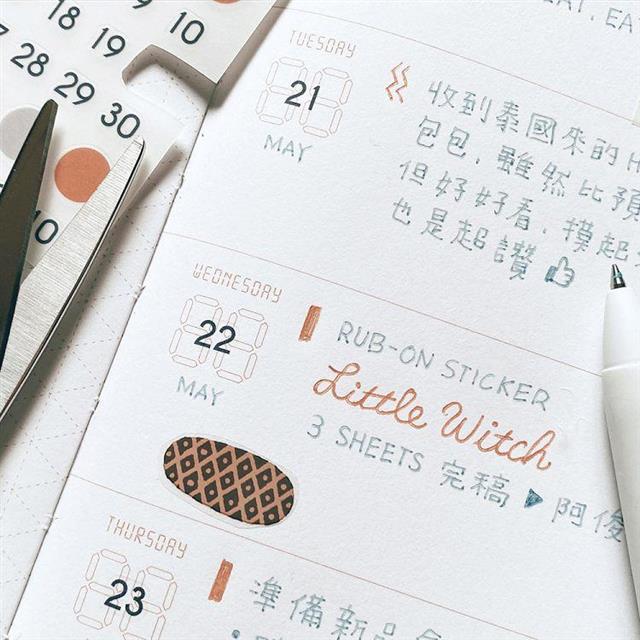 18 19
10
28 29 30
10
EAT, EA
TUESDAY
21
MAY
收到泰國來的
包包,雖然比預
但好好看,摸起
也是超讚
WEDNESDAY
22
MAY
RUB-ON STICKER
Little Witch
3 SHEETS 完稿 ▶ 阿俊
THURSDAY
23
準備新品